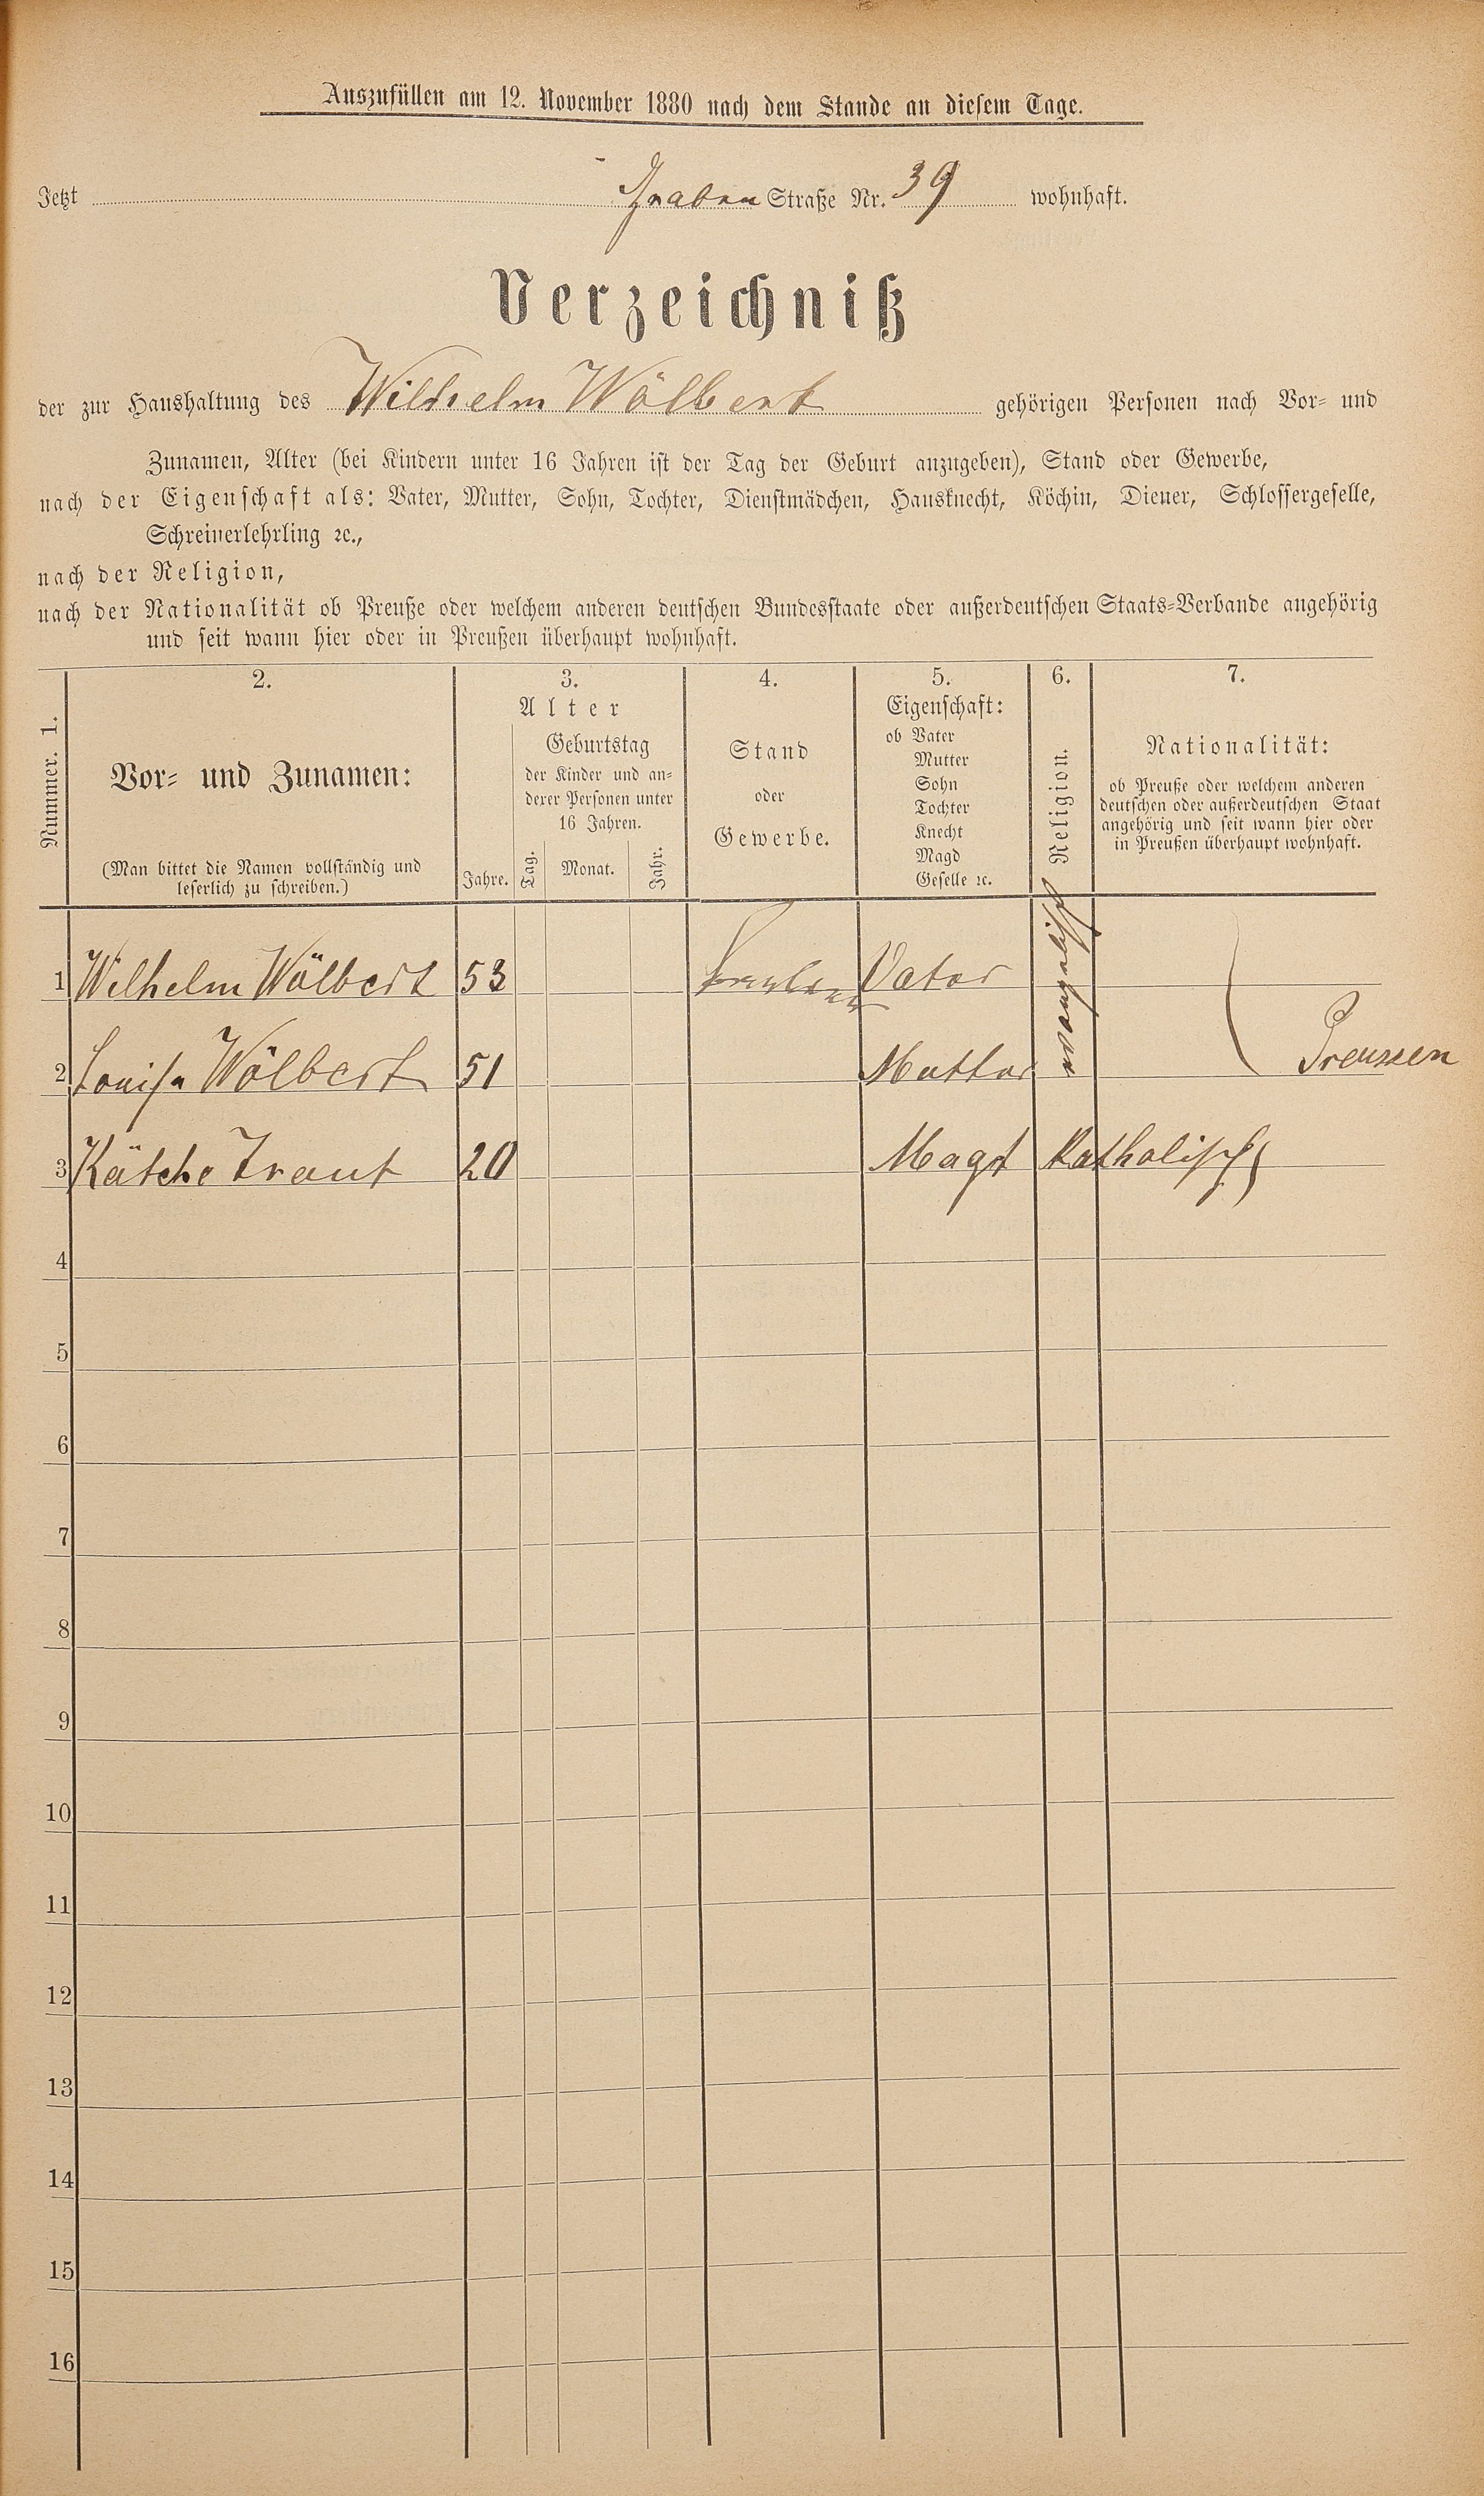 Auszufüllen am 12. November 1880 nach dem Stande an diesem Tage.
Jetzt Graben Straße Nr. 39 wohnhaft.
Verzeichniß
der zur Haushaltung des Wilhelm Wölbert gehörigen Personen nach Vor- und
Zunamen, Alter (bei Kindern unter 16 Jahren ist der Tag der Geburt anzugeben), Stand oder Gewerbe,
nach der Eigenschaft als: Vater, Mutter, Sohn, Tochter, Dienstmädchen, Hausknecht, Köchin, Diener, Schlossergeselle,
Schreinerlehrling ꝛc.,
nach der Religion,
nach der Nationalität ob Preuße oder welchem anderen deutschen Bundesstaate oder außerdeutschen Staats-Verbande angehörig
und seit wann hier oder in Preußen überhaupt wohnhaft.
Nummer. 1.
2.
Vor- und Zunamen:
(Man bittet die Namen vollständig und
leserlich zu schreiben.)
3.
Alter
Geburtstag
der Kinder und an-
derer Personen unter
16 Jahren.
Jahre. Tag. Monat. Jahr.
4.
Stand
oder
Gewerbe.
5.
Eigenschaft:
ob Vater
Mutter
Sohn
Tochter
Knecht
Magd
Geselle ꝛc.
6.
Religion.
7.
Nationalität:
ob Preuße oder welchem anderen
deutschen oder außerdeutschen Staat
angehörig und seit wann hier oder
in Preußen überhaupt wohnhaft.
1 Wilhelm Wölbert 53 Vater evangelisch
2 Louise Wölbert 51 Mutter Preussen
3 Kätche Traut 20 Magd Katholisch
4
5
6
7
8
9
10
11
12
13
14
15
16